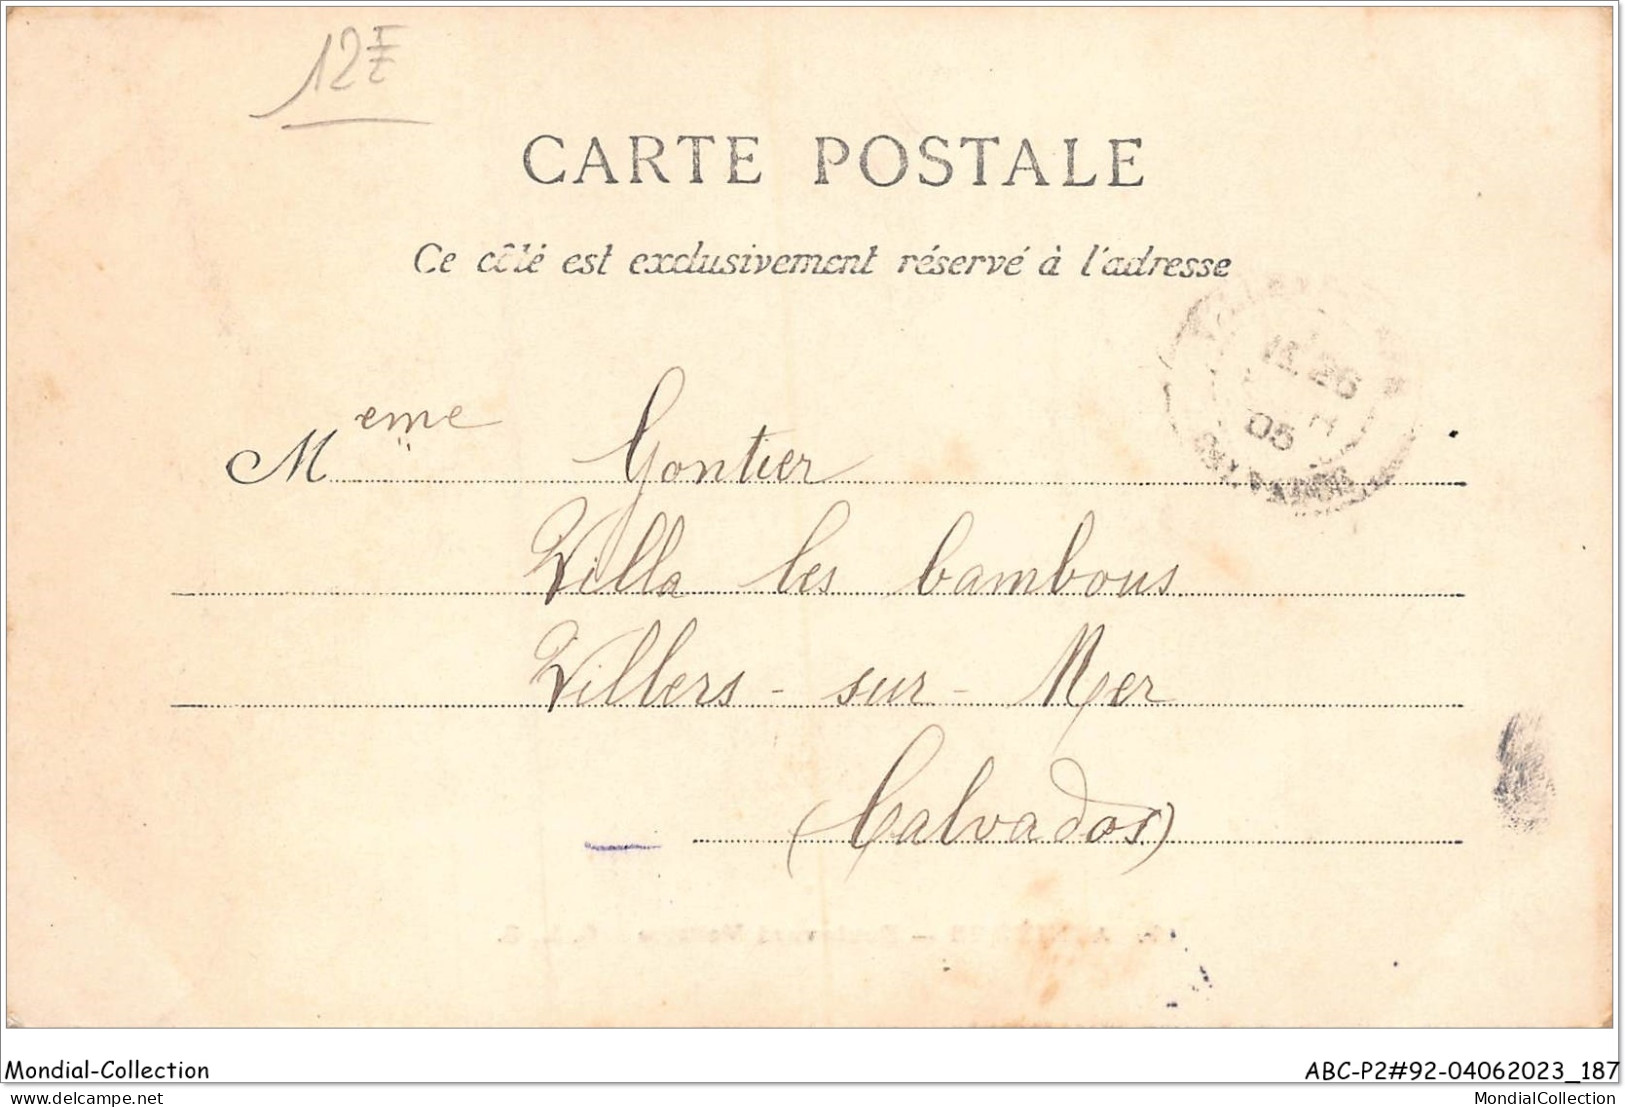 12F
CARTE POSTALE
Ce côté est exclusivement réservé à l'adresse
26
05
CALVADOS
Meme Gontier
Villa les bambous
Villers-sur-Mer
(Calvados)
Mondial-Collection
ABC-P2#92-04062023_187
delcampe.net
MondialCollection